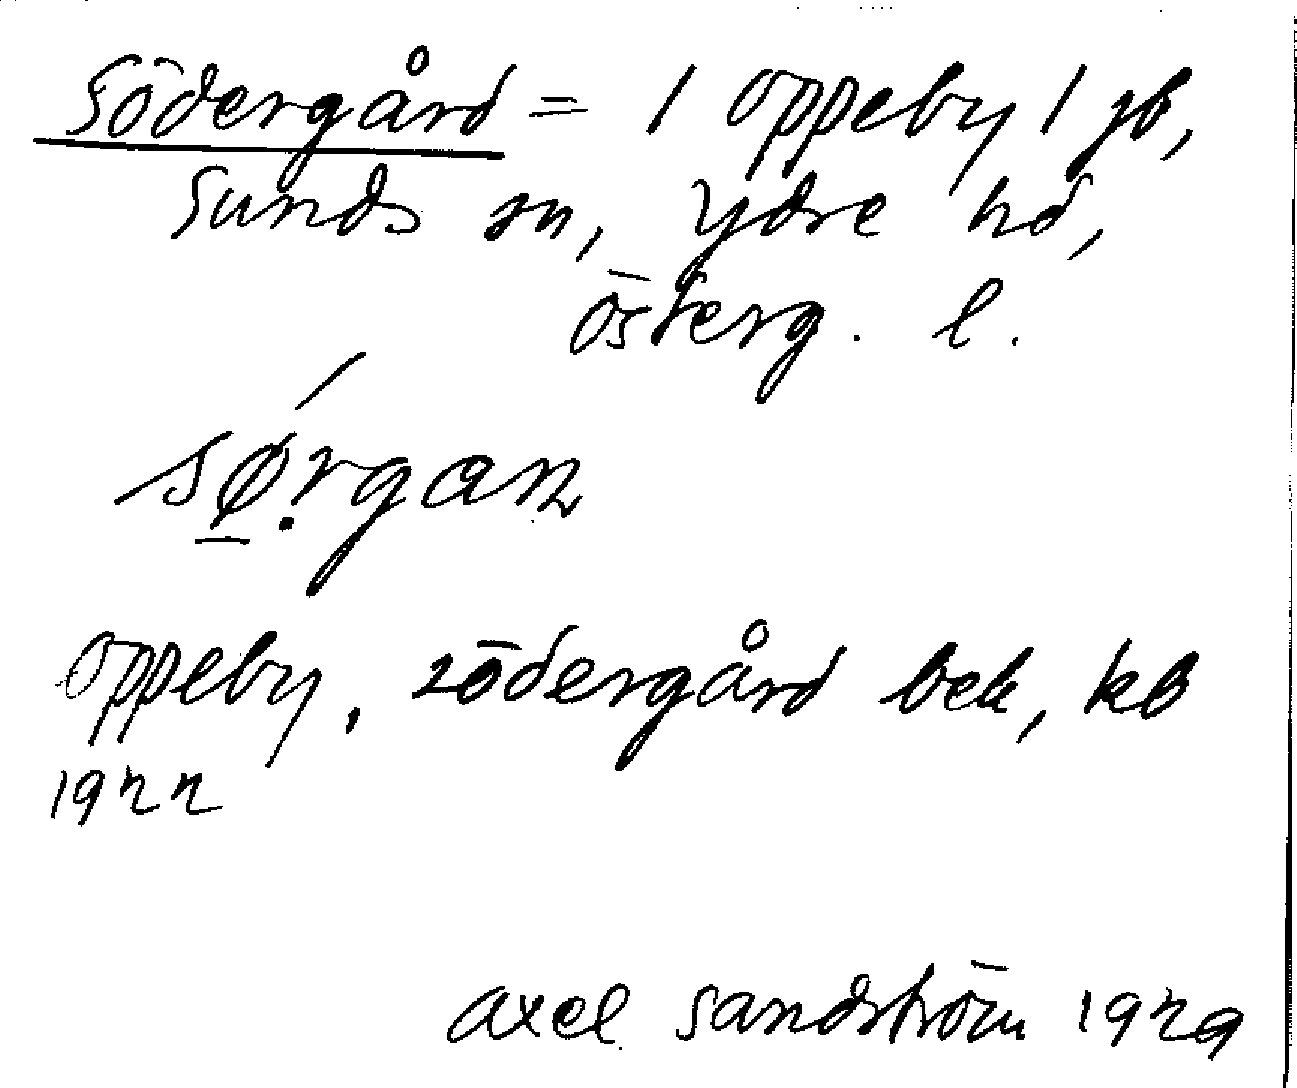 Södergård = 1 Oppeby 1 jb,
Sunds sn, Ydre hd,
Österg. l.
sǿ̱̣rgan
Oppeby, Södergård bek, kb
1922
Axel Sandström 1929